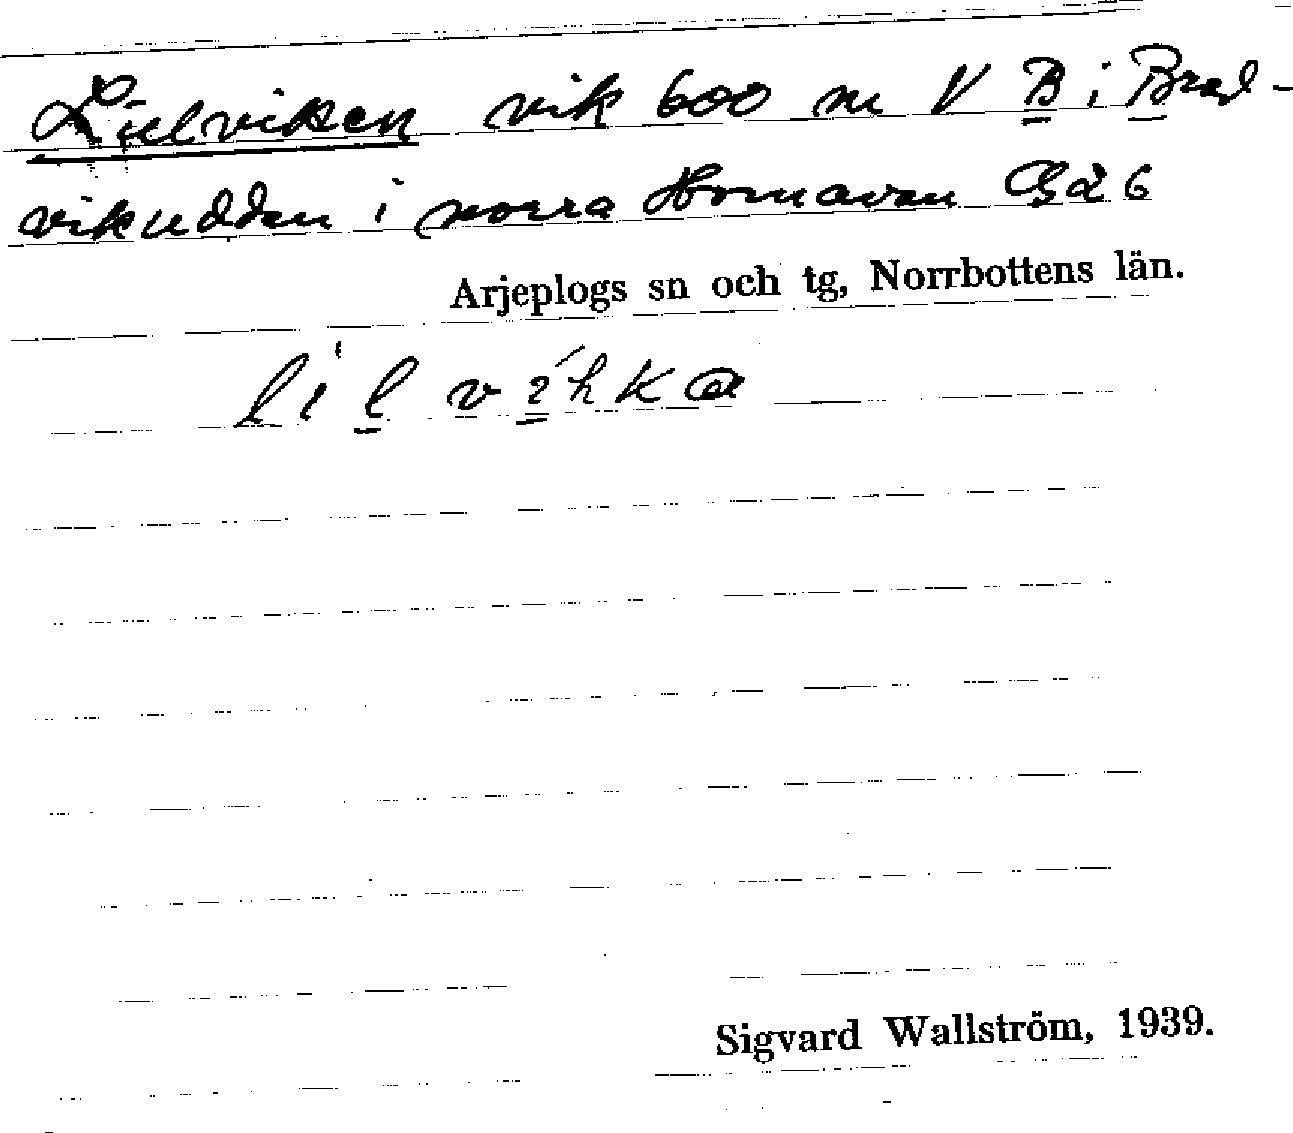 Lillviken vik 600 m V B i Bred-
vikudden i norra Hornavan Gä 6
Arjeplogs sn och tg, Norrbottens län.
li'l víhka
Sigvard Wallström, 1939.